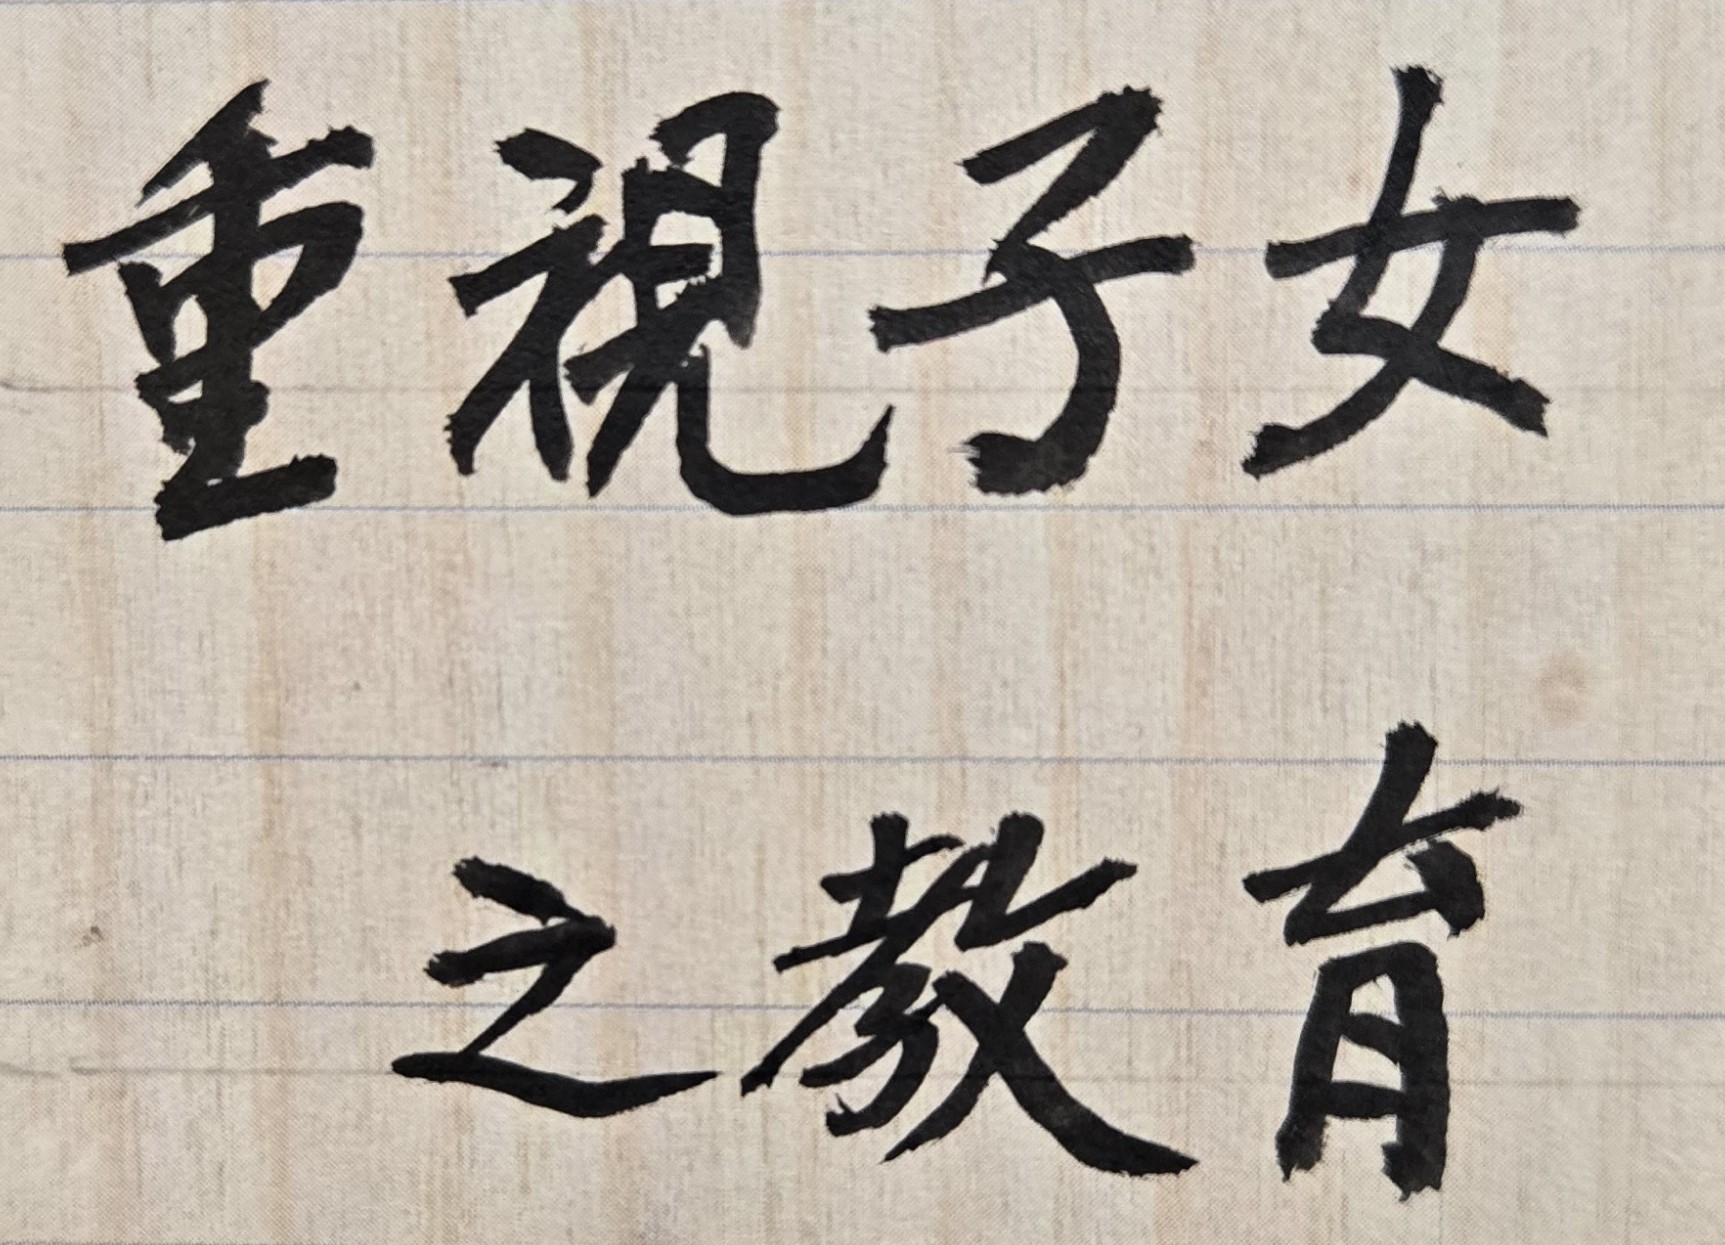 重視子女
之教育